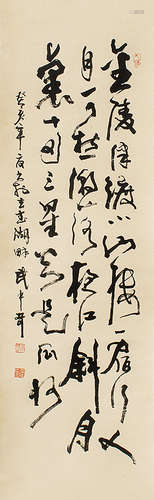 金陵津渡小山樓一宿行人
自可愁潮落夜江斜月
裏兩三星火是瓜州
癸亥年 湖畔武中奇